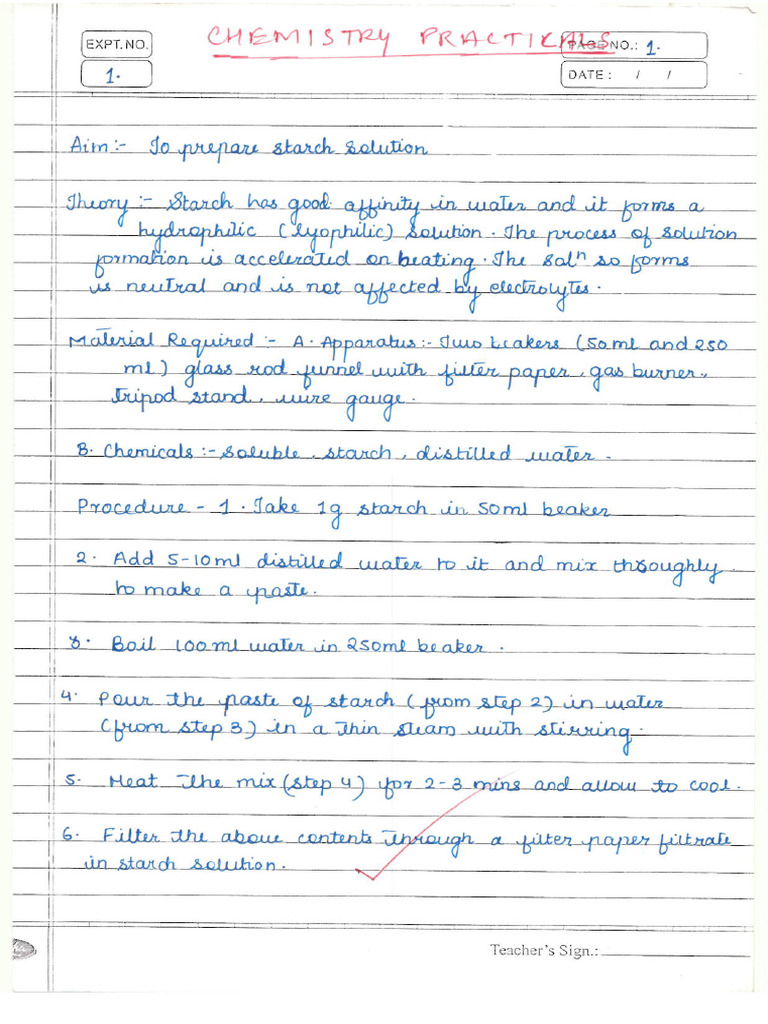 CHEMISTRY PRACTICALS
EXPT. NO.
1.
PAGE NO.: 1.
DATE : / /
Aim :- To prepare starch solution
Theory :- Starch has good affinity in water and it forms a
hydrophilic (lyophilic) solution. The process of solution
formation is accelerated on heating. The solⁿ so forms
is neutral and is not affected by electrolytes.
Material Required :- A. Apparatus :- Two beakers (50 ml and 250
ml) glass rod funnel with filter paper, gas burner,
tripod stand, wire gauge.
B. Chemicals :- Soluble, starch, distilled water.
Procedure - 1. Take 1g starch in 50ml beaker
2. Add 5-10ml distilled water to it and mix throughly
to make a paste.
3. Boil 100ml water in 250ml beaker.
4. Pour the paste of starch (from step 2) in water
(from step 3) in a thin steam with stirring.
5. Heat the mix (step 4) for 2-3 mins and allow to cool.
6. Filter the above contents through a filter paper filtrate
in starch solution.
Teacher's Sign.: